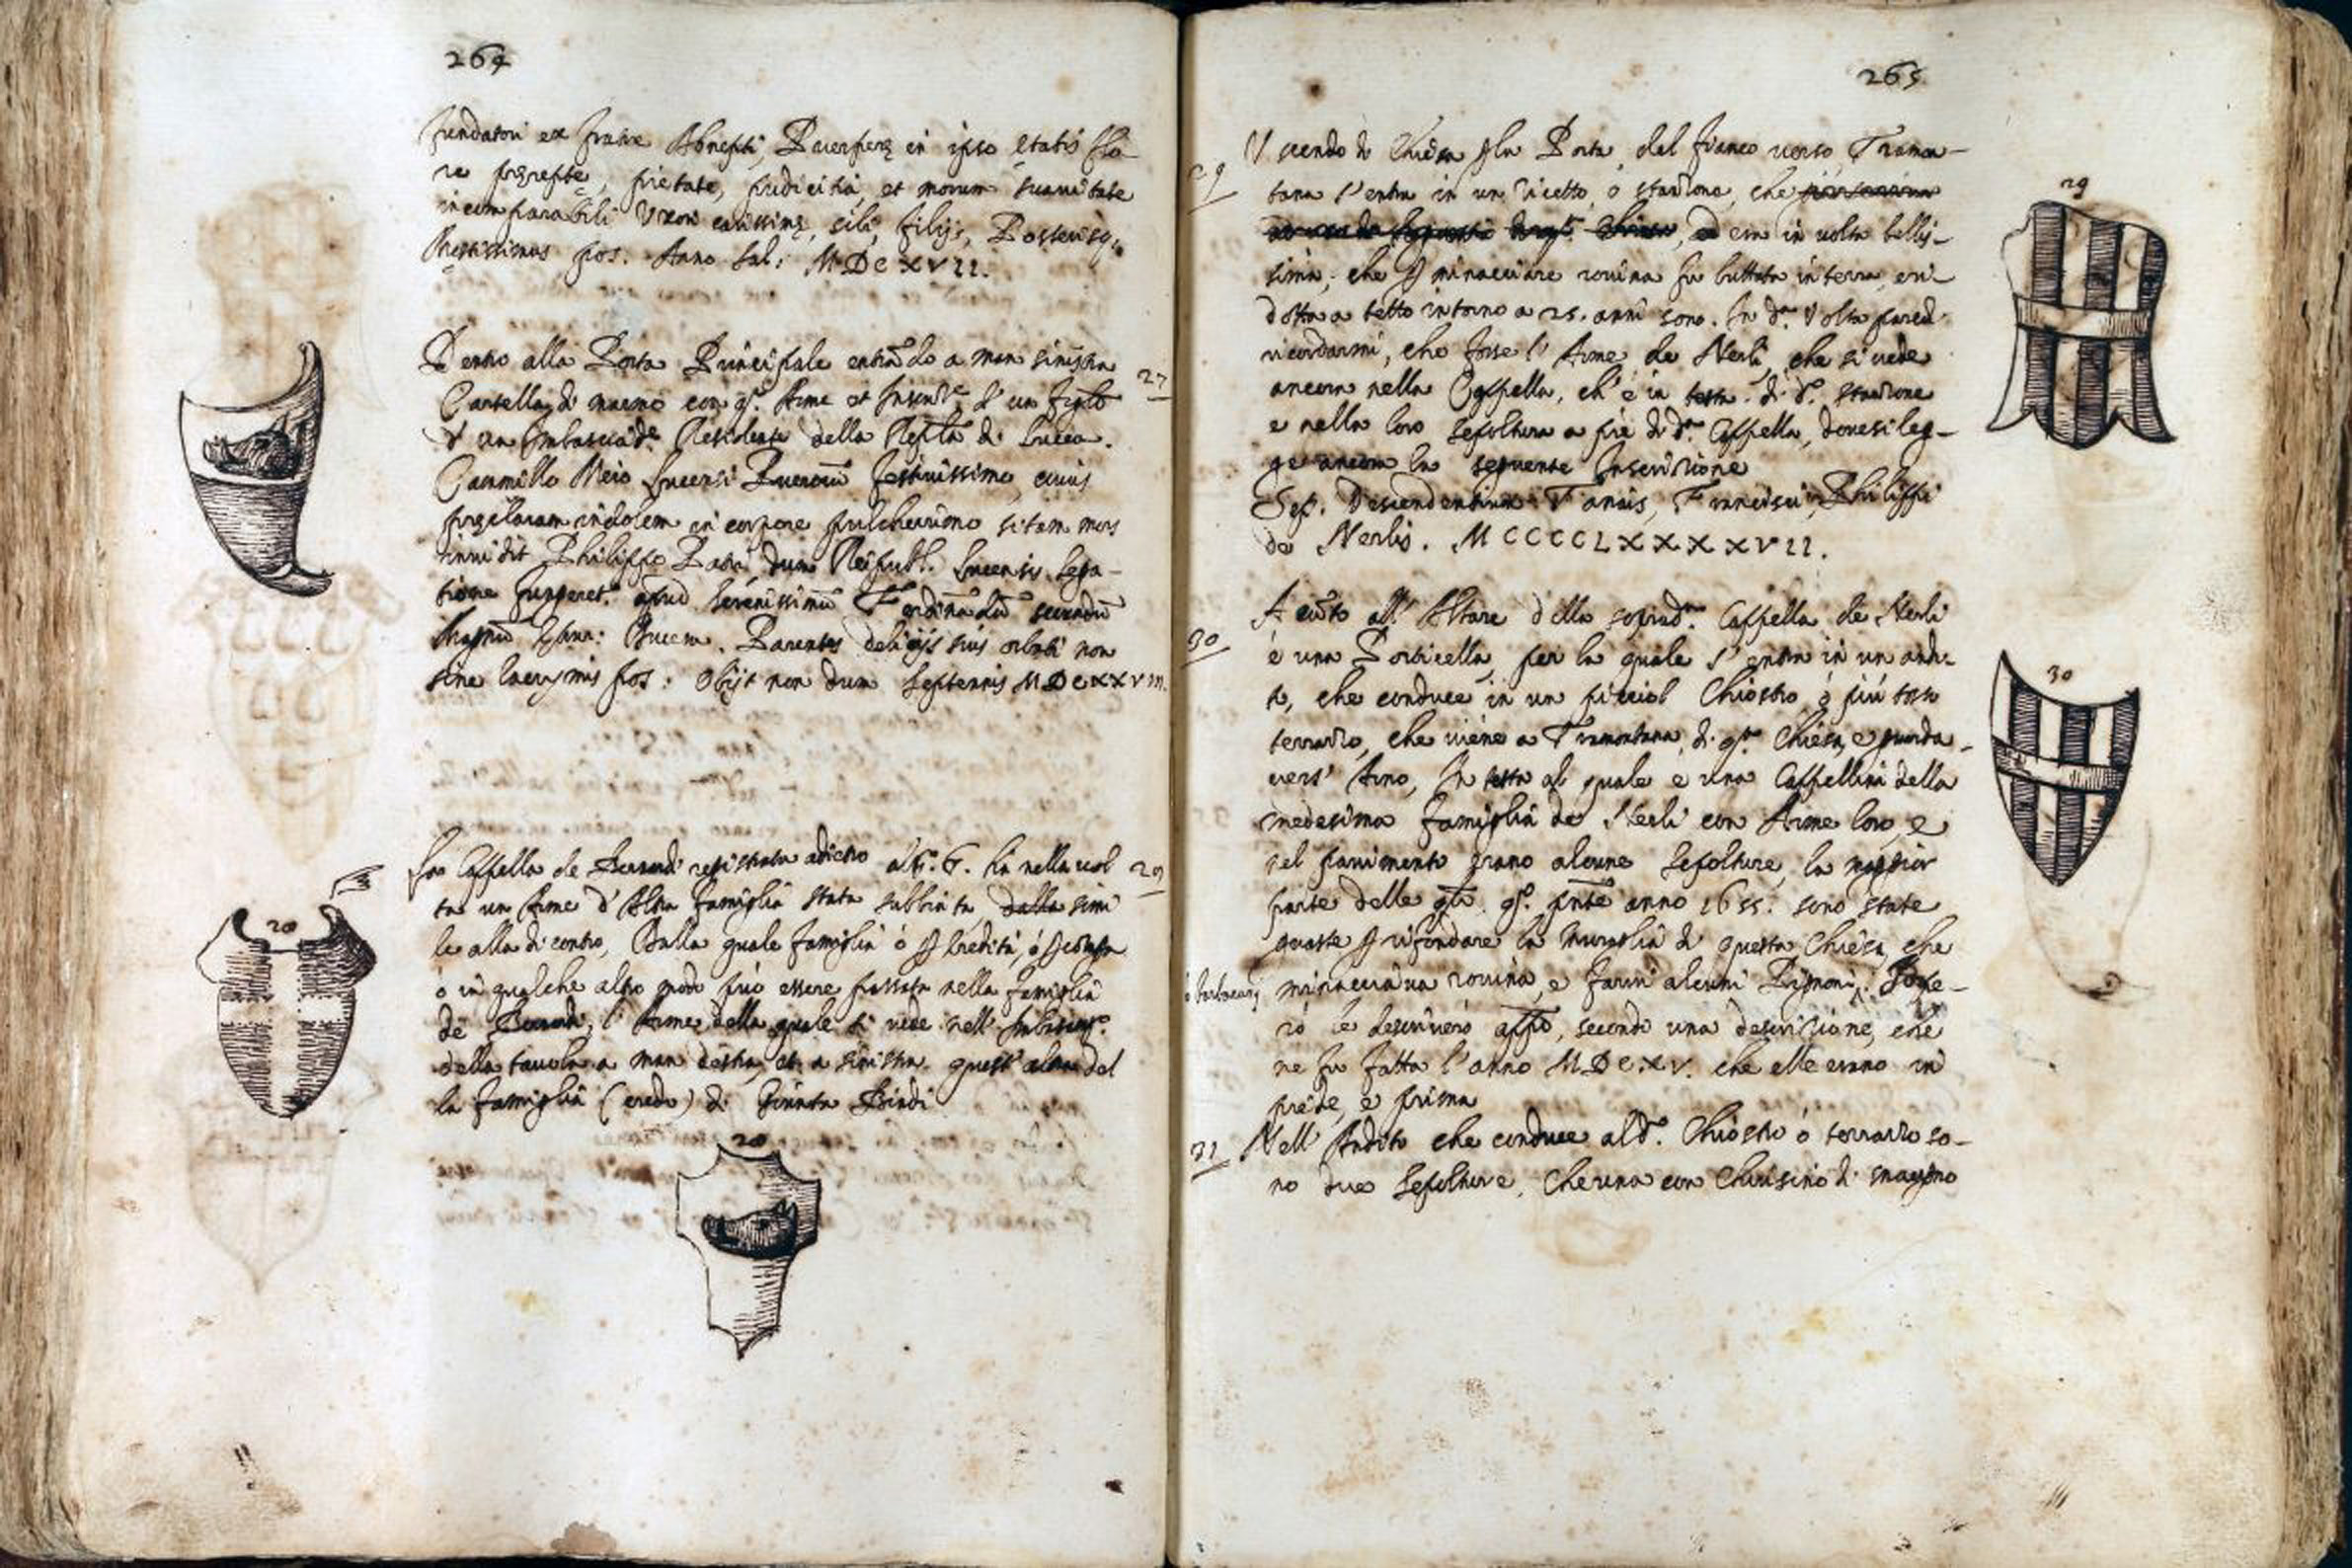 264
fundatori ex fratre Abnepti, Puerperę in ipso ętatis flo-
re pręreptę, pietate, pudicitia, et morum suauitate
incomparabili Vxori carissimę, sibi, filijs, Posterisq;
Męstissimus pos. Anno Sal: MDCXVII.
27
Dentro alla Porta Principale entrãdo a man sinistra
Cartella di marmo con qta. Arme et Inscriẽ d'un figlo
d'un Imbasciade. Residente della Repla. di Lucca.
Cammillo Meio Lucensi Puerorũ festiuissimo, cuius
pręclaram indolem in corpore pulcherrimo sitam mors
inuidit Philippo Patri dum Reipubl. Lucensis lega-
tione fungeret. apud Serenissimũ Ferdinãdũ secundũ
Magnũ Ducem. Parentes delicijs suis orbati non
sine lacrymis pos: Obijt non dum septennis MDCXXVIII.
28
La Cappella de registrata adietro al No. 6. hà nella uol
ta un Arme d'Altra famiglia stata subbinta, dalla simi
le alla di contro, Dalla quale famiglia ò p heredità, ò p compra
ò in qualche altro modo può essere passata nella famiglia
de l'Arme della quale si vede nell' Imbasamto.
della tauola a man destra, et a sinistra quest' altra del
la famiglia (credo) di Giunta Bindi
28
28
265
29
29
Vscendo di Chiesa p la Porta del fianco uerso Tramon-
tana s'entra in un ricetto, ò stanzone, che
era in uolta bellis-
sima, che p minacciare rouina fu buttata in terra, e ri-
dotta a tetto intorno a 25. anni sono. In da. Volta pared
ricordarmi, che fosse l'Arme de Nerli, che si uede
ancora nella Cappella, ch'è in testa di do. stanzone
e nella loro sepoltura a piè di da. Cappella, doue si leg-
ge ancora la seguente Inscrizione
Sep. Descendentium Tanais, Francisci, Philippi
de Nerlis. MCCCCLXXXXVII.
30
30
Acãto all' Altare della sopradta. Cappella de Nerli
è una Porticella per la quale s'entra in un andi-
to, che conduce in un picciol Chiostro, ò più tosto
terrazzo, che viene a Tramontana di qta. Chiesa, e guarda
uers' Arno, In testa al quale è una Cappellina della
medesima famiglia de Nerli con Arme loro, e
nel pauimento erano alcune sepolture, la maggior
parte delle qli. qto. pñte anno 1655. sono state
guaste p rifondare la muraglia di questa Chiesa, che
minacciaua rouina, e farui alcuni Pignoni. Pure-
ò barbacani
rò le descriuerò appo, secondo una descrizione, che
ne fu fatta l'anno MDCXV. che elle erano in
piede, e prima
31
Nell' Andito che conduce al do. Chiostro ò terrazzo so-
no due Sepolture. Che una con Chiusino di marmo